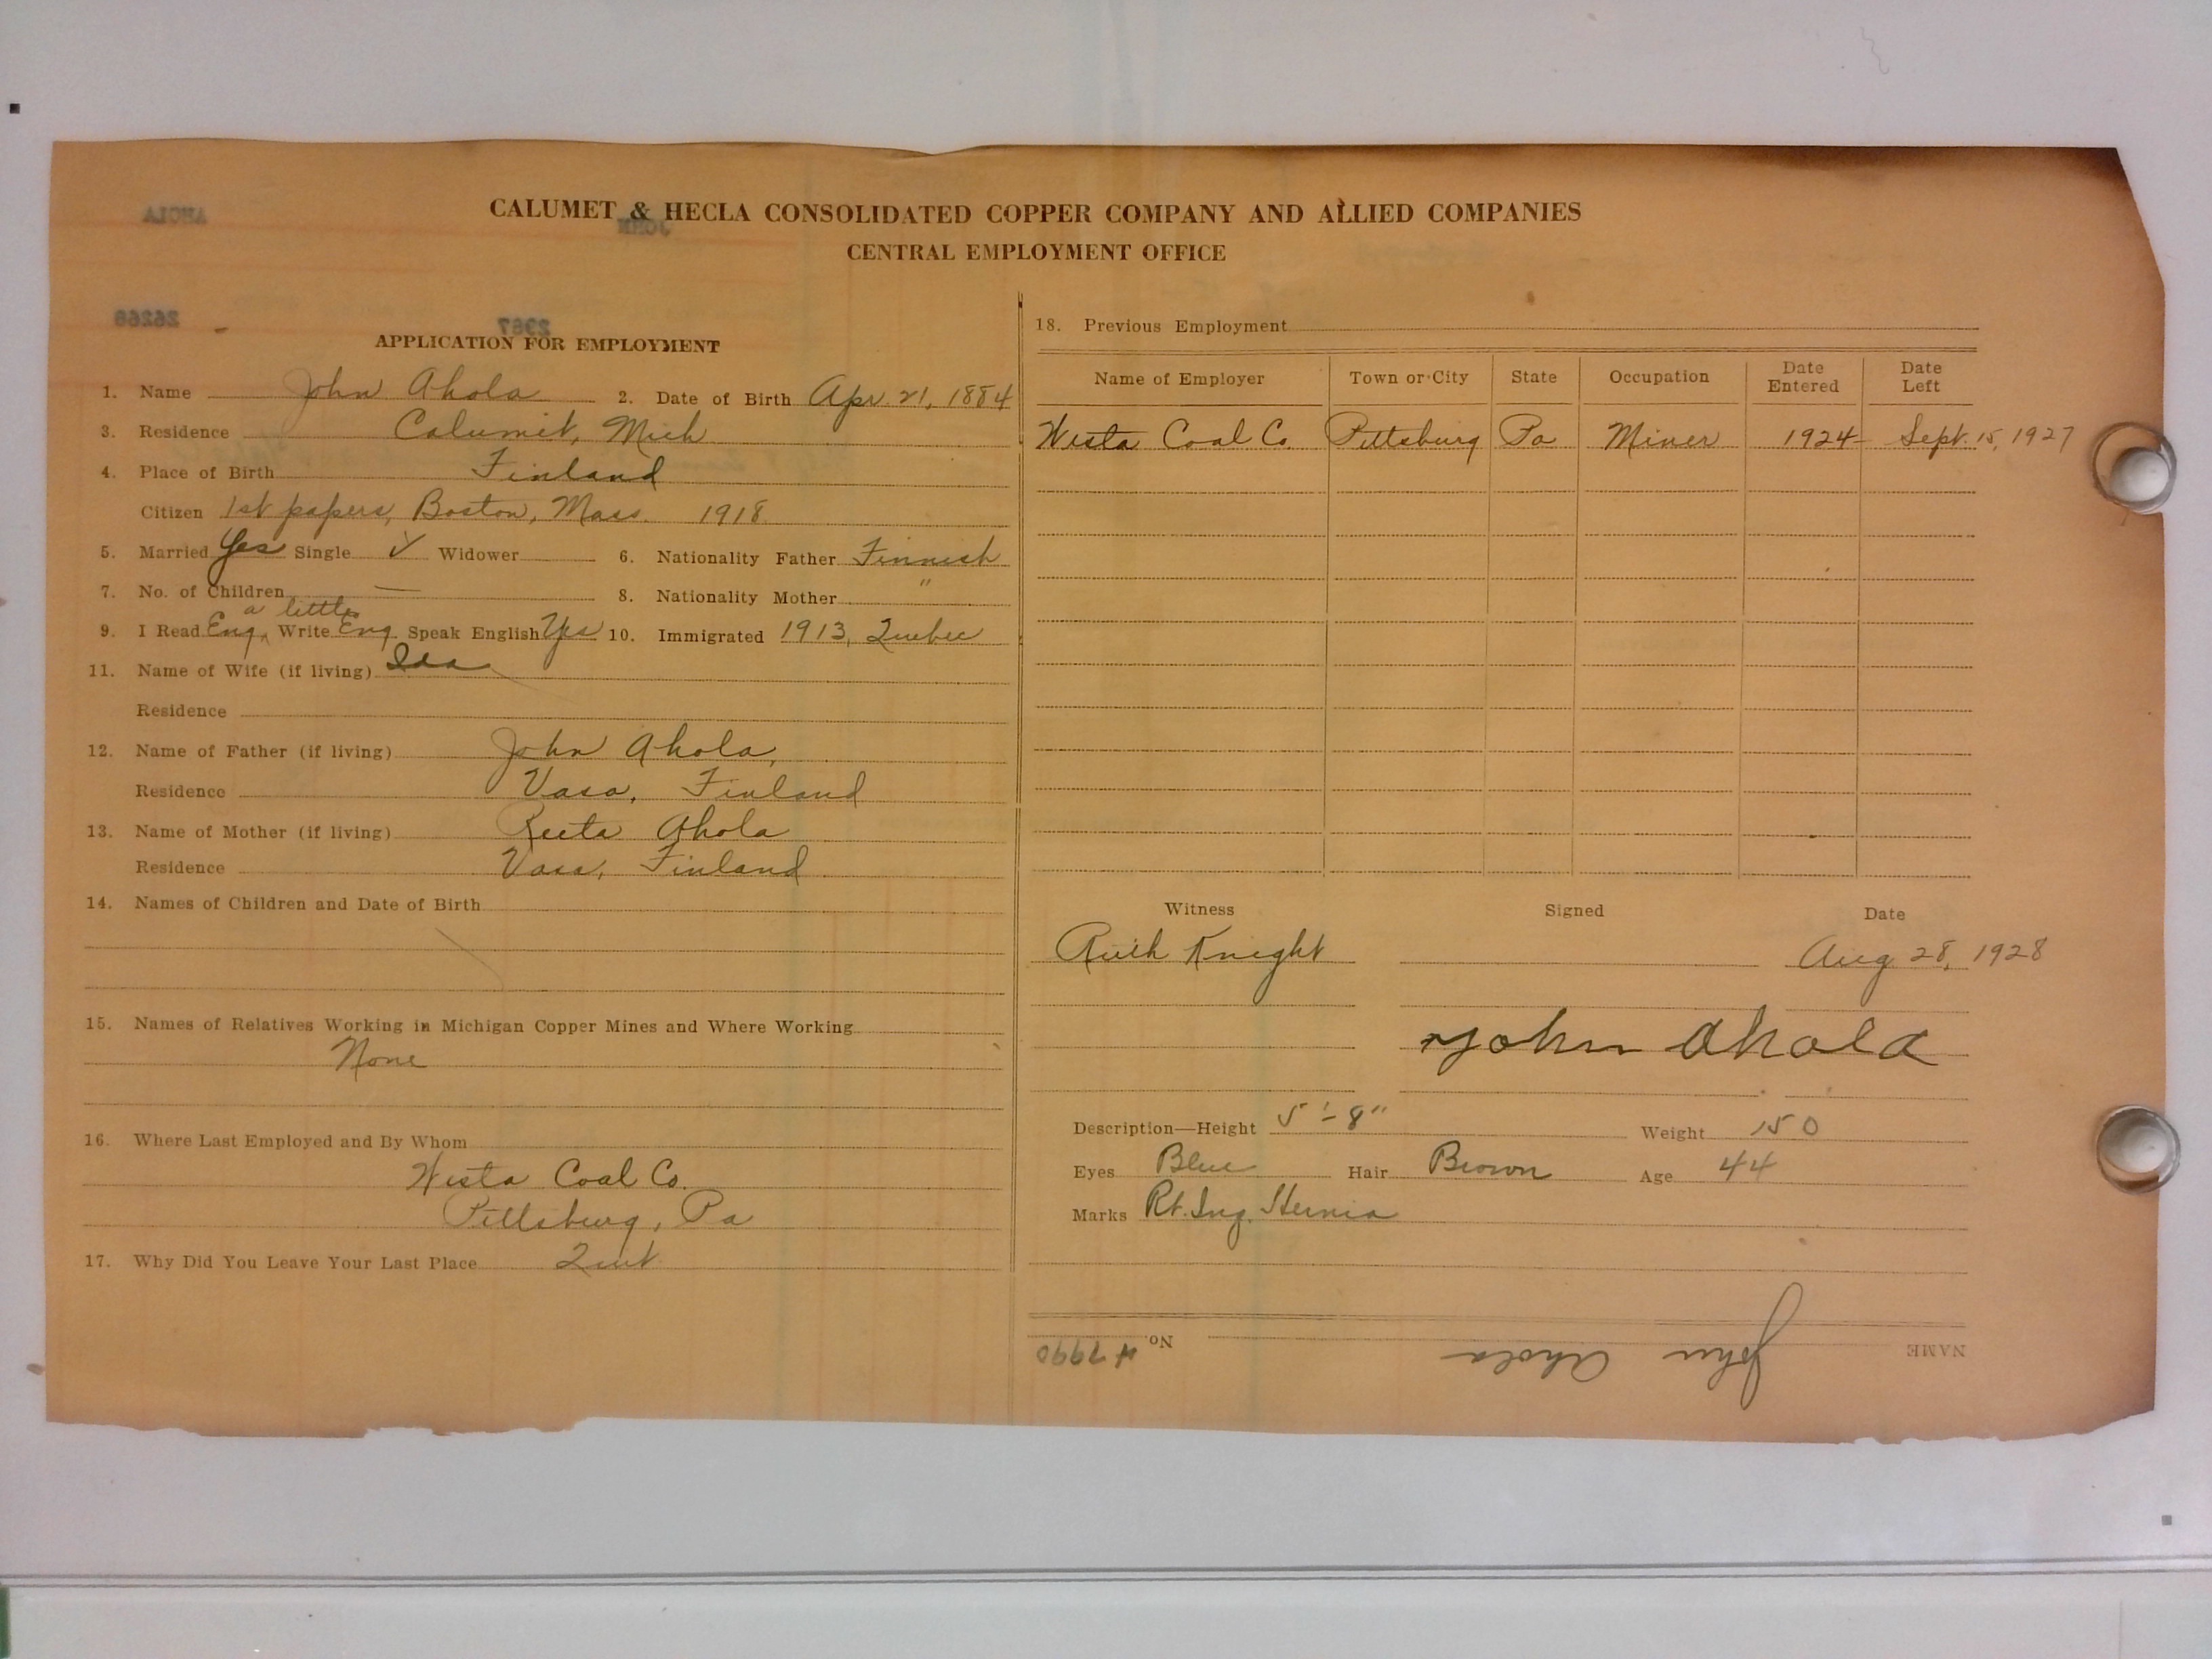 AHOLA
JOHN
CALUMET & HECLA CONSOLIDATED COPPER COMPANY AND ALLIED COMPANIES
CENTRAL EMPLOYMENT OFFICE
26268
2967
APPLICATION FOR EMPLOYMENT
1. Name John Ahola 2. Date of Birth Apr 21, 1884
3. Residence Calumet, Mich
4. Place of Birth Finland
Citizen 1st papers, Boston, Mass. 1918
5. Married Yes Single ✓ Widower 6. Nationality Father Finnish
7. No. of Children — 8. Nationality Mother "
a little
9. I Read Eng ^ Write Eng Speak English Yes 10. Immigrated 1913, Quebec
11. Name of Wife (if living) Ida
Residence
12. Name of Father (if living) John Ahola,
Residence Vasa, Finland
13. Name of Mother (if living) Reeta Ahola
Residence Vasa, Finland
14. Names of Children and Date of Birth
15. Names of Relatives Working in Michigan Copper Mines and Where Working
None
16. Where Last Employed and By Whom
Westa Coal Co.
Pittsburg, Pa
17. Why Did You Leave Your Last Place Quit
18. Previous Employment
Name of Employer Town or City State Occupation Date Entered Date Left
Westa Coal Co. Pittsburg Pa Miner 1924 Sept. 15, 1927
Witness Signed Date
Ruth Knight Aug 28, 1928
John Ahola
Description—Height 5'-8" Weight 150
Eyes Blue Hair Brown Age 44
Marks Rt. Ing. Hernia
NAME John Ahola No. # 7990